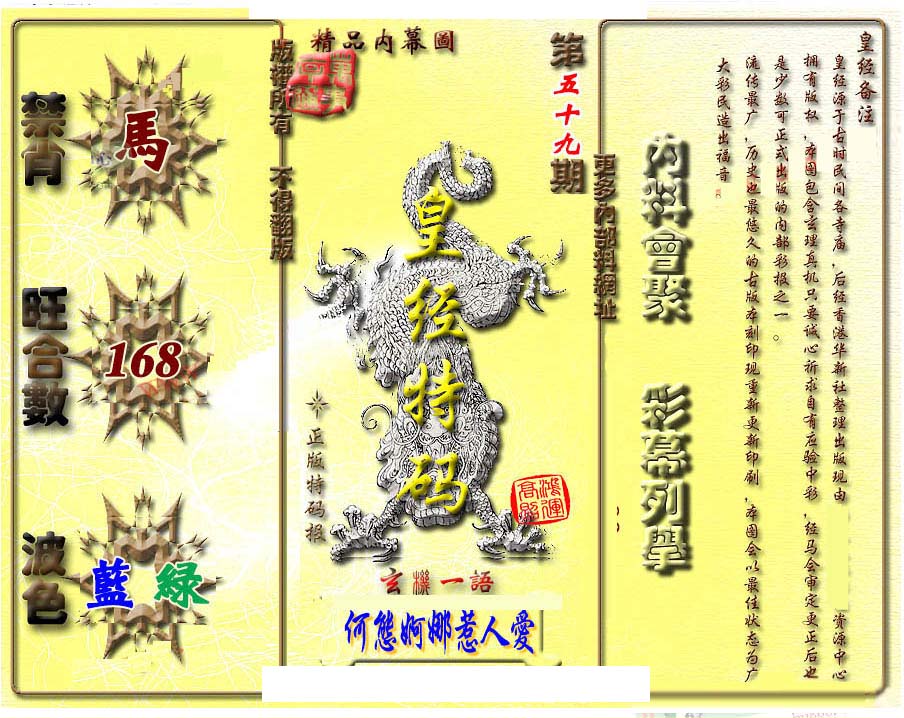 精品内幕圖
版權所有 不得翻版
第五十九期
更多內部料網址
禁肖
馬
旺合數
168
波色
藍 緑
皇经特码
正版特码报
鴻運高照
玄機一語
何態婀娜惹人愛
內料會聚
彩幕列舉
皇经备注
皇经源于古时民间各寺庙,后经香港华新社整理出版现由 资源中心
拥有版权,本图包含玄理真机只要诚心祈求自有应验中彩,经马会审定更正后也
是少数可正式出版的内部彩报之一。
流传最广,历史也最悠久的古版本刻印现重新更新印刷,本图会以最佳状态为广
大彩民造出福音